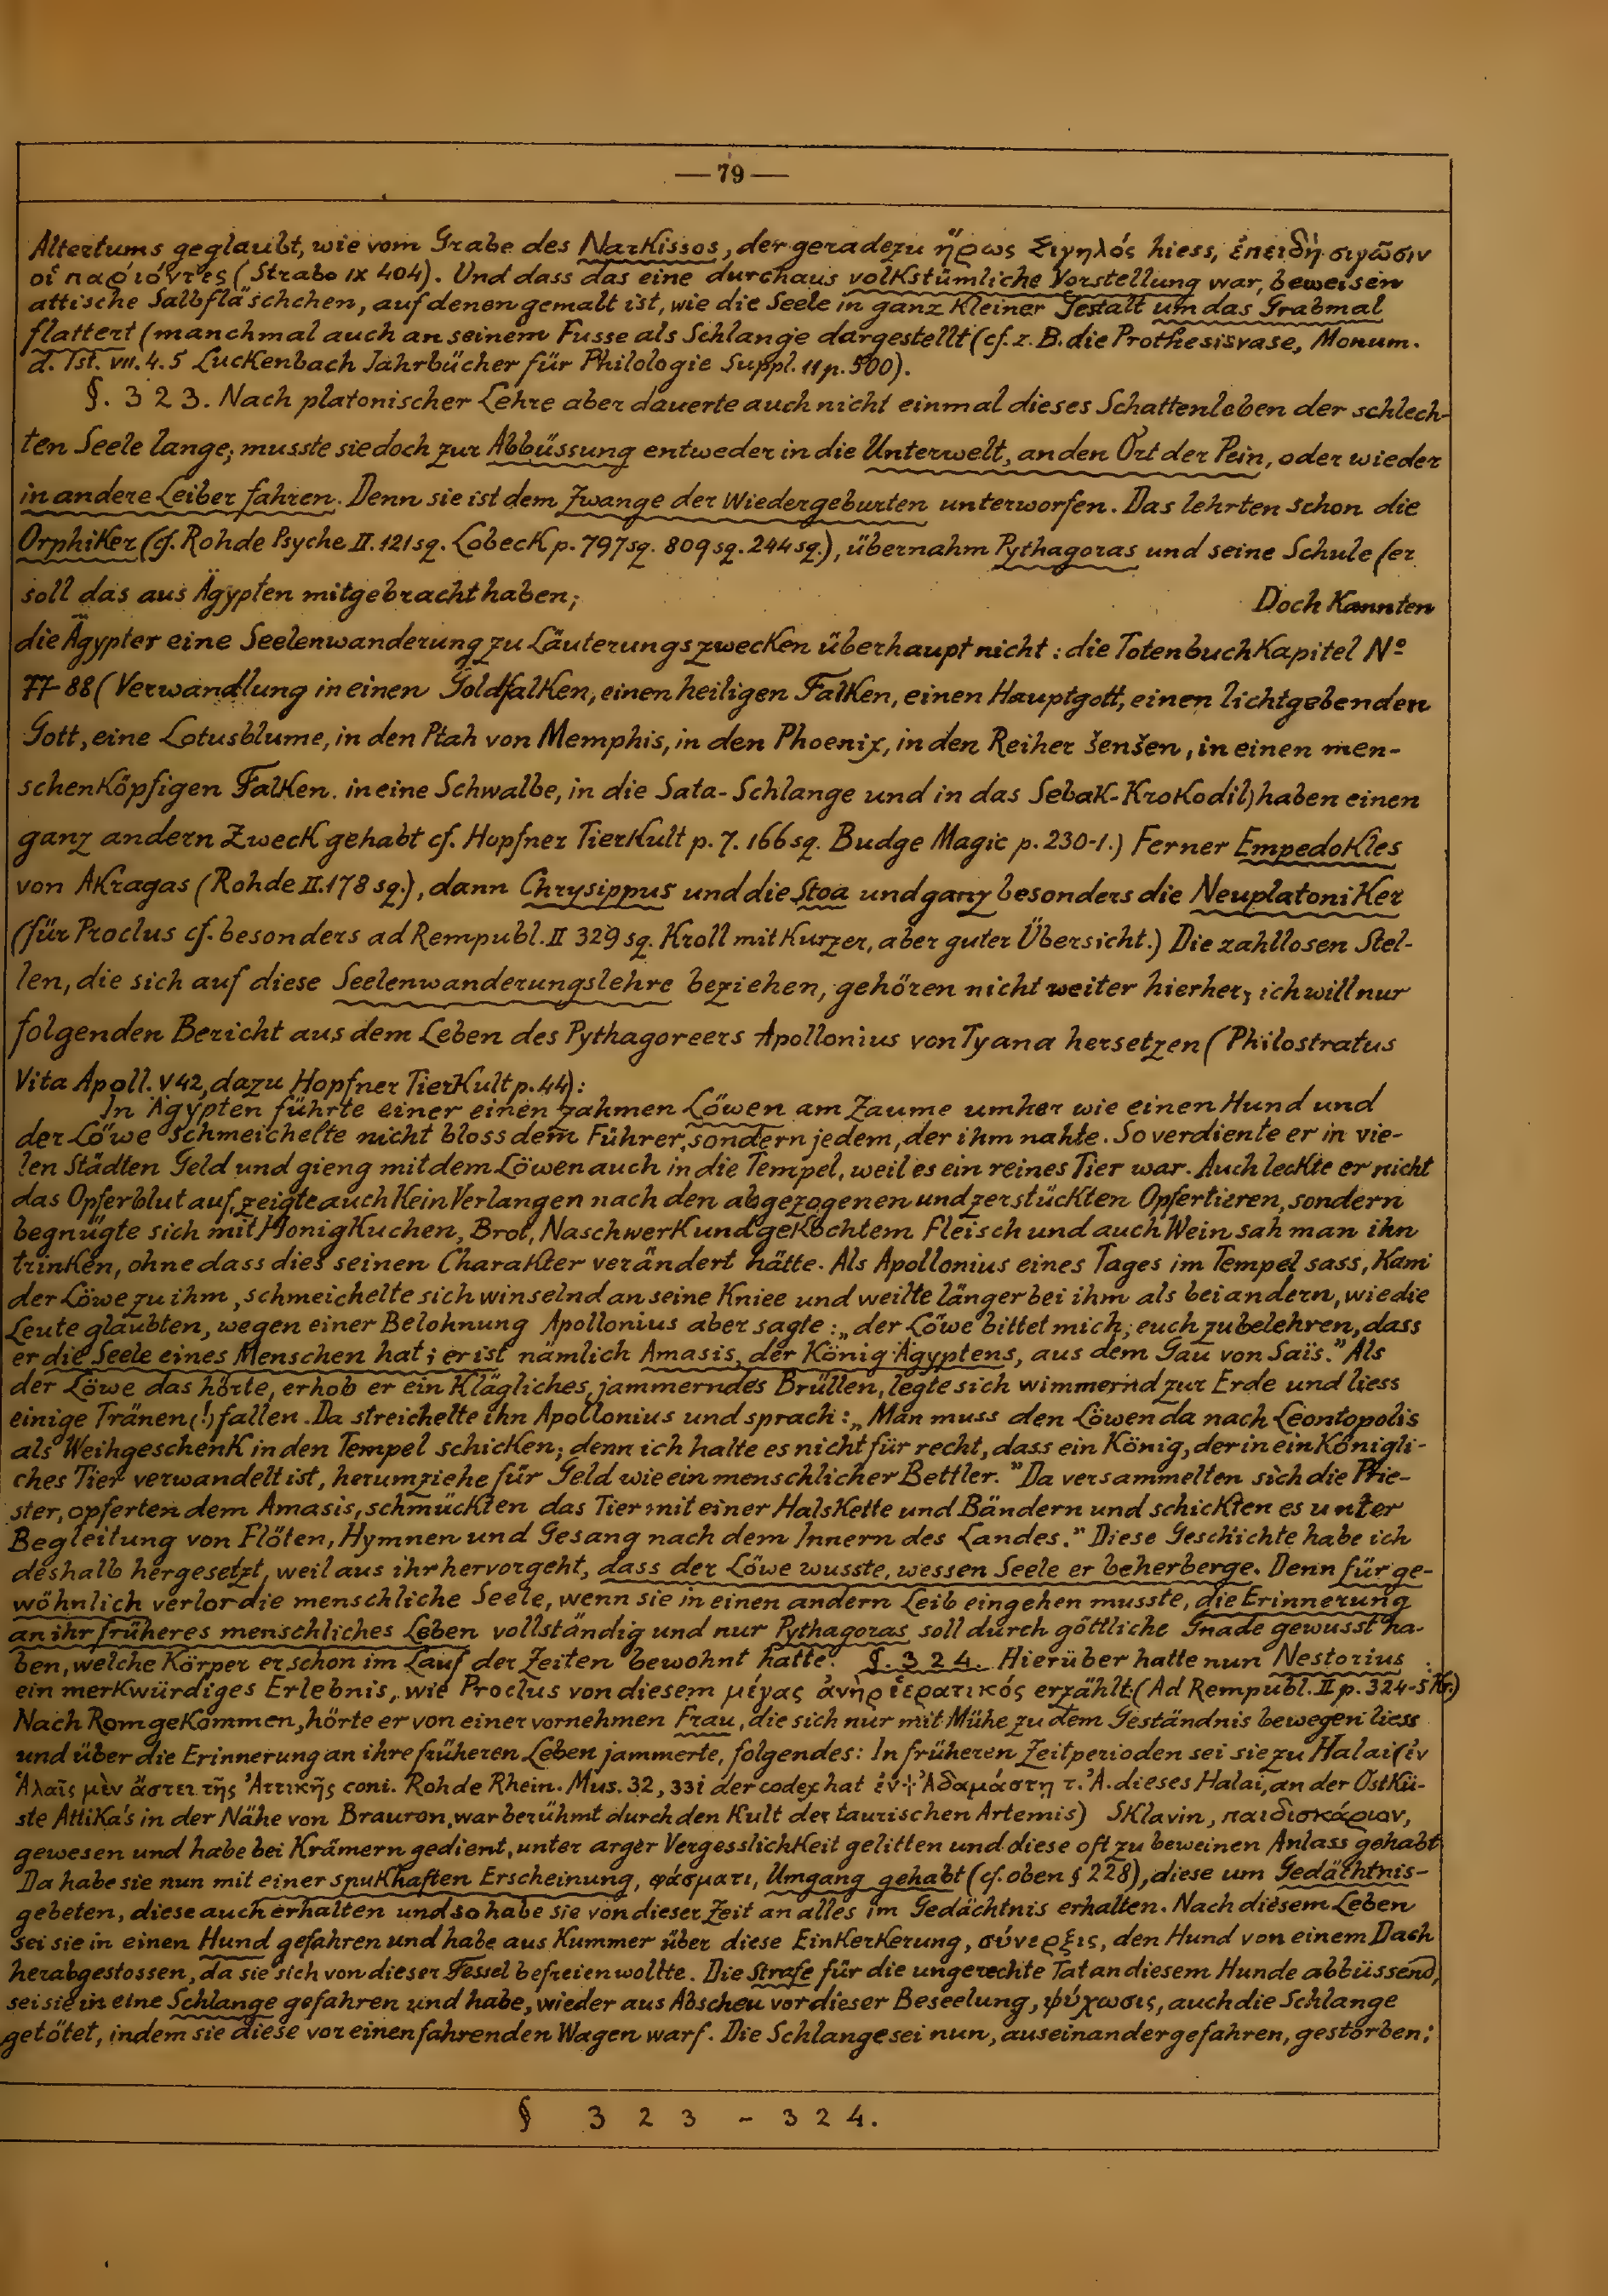 — 79 —
Altertums geglaubt, wie vom Grabe des Narkissos, der geradezu ἥρως Σιγηλός hiess, ἐπειδὴ σιγῶσιν
οἱ παριόντες (Strabo IX 404). Und dass das eine durchaus volkstümliche Vorstellung war, beweisen
attische Salbfläschchen, auf denen gemalt ist, wie die Seele in ganz kleiner Gestalt um das Grabmal
flattert (manchmal auch an seinem Fusse als Schlange dargestellt (cf. z. B. die Prothesisvase, Monum.
d. Ist. VIII. 4. 5 Luckenbach Jahrbücher für Philologie Suppl. 11 p. 500).
§. 3 2 3. Nach platonischer Lehre aber dauerte auch nicht einmal dieses Schattenleben der schlech-
ten Seele lange; musste sie doch zur Abbüssung entweder in die Unterwelt, an den Ort der Pein, oder wieder
in andere Leiber fahren. Denn sie ist dem Zwange der Wiedergeburten unterworfen. Das lehrten schon die
Orphiker (cf. Rohde Psyche II. 121 sq. Lobeck p. 797 sq. 809 sq. 244 sq.), übernahm Pythagoras und seine Schule (er
soll das aus Ägypten mitgebracht haben; Doch kannten
die Ägypter eine Seelenwanderung zu Läuterungszwecken überhaupt nicht: die Totenbuchkapitel Nº
77-88 (Verwandlung in einen Goldfalken, einen heiligen Falken, einen Hauptgott, einen lichtgebenden
Gott, eine Lotusblume, in den Ptah von Memphis, in den Phoenix, in den Reiher šenšen, in einen men-
schenköpfigen Falken. in eine Schwalbe, in die Sata-Schlange und in das Sebak-Krokodil) haben einen
ganz andern Zweck gehabt cf. Hopfner Tierkult p. 7. 166 sq. Budge Magic p. 230-1.) Ferner Empedokles
von Akragas (Rohde II. 178 sq.), dann Chrysippus und die Stoa und ganz besonders die Neuplatoniker
(für Proclus cf. besonders ad Rempubl. II 329 sq. Kroll mit kurzer, aber guter Übersicht.) Die zahllosen Stel-
len, die sich auf diese Seelenwanderungslehre beziehen, gehören nicht weiter hierher; ich will nur
folgenden Bericht aus dem Leben des Pythagoreers Apollonius von Tyana hersetzen (Philostratus
Vita Apoll. V 42, dazu Hopfner Tierkult p. 44):
In Ägypten führte einer einen zahmen Löwen am Zaume umher wie einen Hund und
der Löwe schmeichelte nicht bloss dem Führer, sondern jedem, der ihm nahte. So verdiente er in vie-
len Städten Geld und gieng mit dem Löwen auch in die Tempel, weil es ein reines Tier war. Auch leckte er nicht
das Opferblut auf, zeigte auch kein Verlangen nach den abgezogenen und zerstückten Opfertieren, sondern
begnügte sich mit Honigkuchen, Brot, Naschwerk und gekochtem Fleisch und auch Wein sah man ihn
trinken, ohne dass dies seinen Charakter verändert hätte. Als Apollonius eines Tages im Tempel sass, kam
der Löwe zu ihm, schmeichelte sich winselnd an seine Kniee und weilte länger bei ihm als bei andern, wie die
Leute glaubten, wegen einer Belohnung Apollonius aber sagte: „der Löwe bittet mich, euch zu belehren, dass
er die Seele eines Menschen hat; er ist nämlich Amasis, der König Ägyptens, aus dem Gau von Saïs." Als
der Löwe das hörte, erhob er ein klägliches, jammerndes Brüllen, legte sich wimmernd zur Erde und liess
einige Tränen (!) fallen. Da streichelte ihn Apollonius und sprach: „Man muss den Löwen da nach Leontopolis
als Weihgeschenk in den Tempel schicken; denn ich halte es nicht für recht, dass ein König, der in ein königli-
ches Tier verwandelt ist, herumziehe für Geld wie ein menschlicher Bettler." Da versammelten sich die Prie-
ster, opferten dem Amasis, schmückten das Tier mit einer Halskette und Bändern und schickten es unter
Begleitung von Flöten, Hymnen und Gesang nach dem Innern des Landes." Diese Geschichte habe ich
deshalb hergesetzt, weil aus ihr hervorgeht, dass der Löwe wusste, wessen Seele er beherberge. Denn für ge-
wöhnlich verlor die menschliche Seele, wenn sie in einen andern Leib eingehen musste, die Erinnerung
an ihr früheres menschliches Leben vollständig und nur Pythagoras soll durch göttliche Gnade gewusst ha-
ben, welche Körper er schon im Lauf der Zeiten bewohnt hatte. §. 3 2 4. Hierüber hatte nun Nestorius
ein merkwürdiges Erlebnis, wie Proclus von diesem μέγας ἀνὴρ ἱερατικός erzählt: (Ad Rempubl. II p. 324-5 Kr.)
Nach Rom gekommen, hörte er von einer vornehmen Frau, die sich nur mit Mühe zu dem Geständnis bewegen liess
und über die Erinnerung an ihre früheren Leben jammerte, folgendes: In früheren Zeitperioden sei sie zu Halai (ἐν
Ἁλαῖς μὲν ἄστει τῆς Ἀττικῆς coni. Rohde Rhein. Mus. 32, 331 der codex hat ἐν † Ἀδαμάστῃ τ. Ἀ. dieses Halai, an der Ostkü-
ste Attika's in der Nähe von Brauron, war berühmt durch den Kult der taurischen Artemis) Sklavin, παιδισκάριον,
gewesen und habe bei Krämern gedient, unter arger Vergesslichkeit gelitten und diese oft zu beweinen Anlass gehabt
Da habe sie nun mit einer spukhaften Erscheinung, φάσματι, Umgang gehabt (cf. oben § 228), diese um Gedächtnis-
gebeten, diese auch erhalten und so habe sie von dieser Zeit an alles im Gedächtnis erhalten. Nach diesem Leben
sei sie in einen Hund gefahren und habe aus Kummer über diese Einkerkerung, σύνερξις, den Hund von einem Dach
herabgestossen, da sie sich von dieser Fessel befreien wollte. Die Strafe für die ungerechte Tat an diesem Hunde abbüssend,
sei sie in eine Schlange gefahren und habe, wieder aus Abscheu vor dieser Beseelung, ψύχωσις, auch die Schlange
getötet, indem sie diese vor einen fahrenden Wagen warf. Die Schlange sei nun, auseinandergefahren, gestorben;
§ 3 2 3 - 3 2 4.